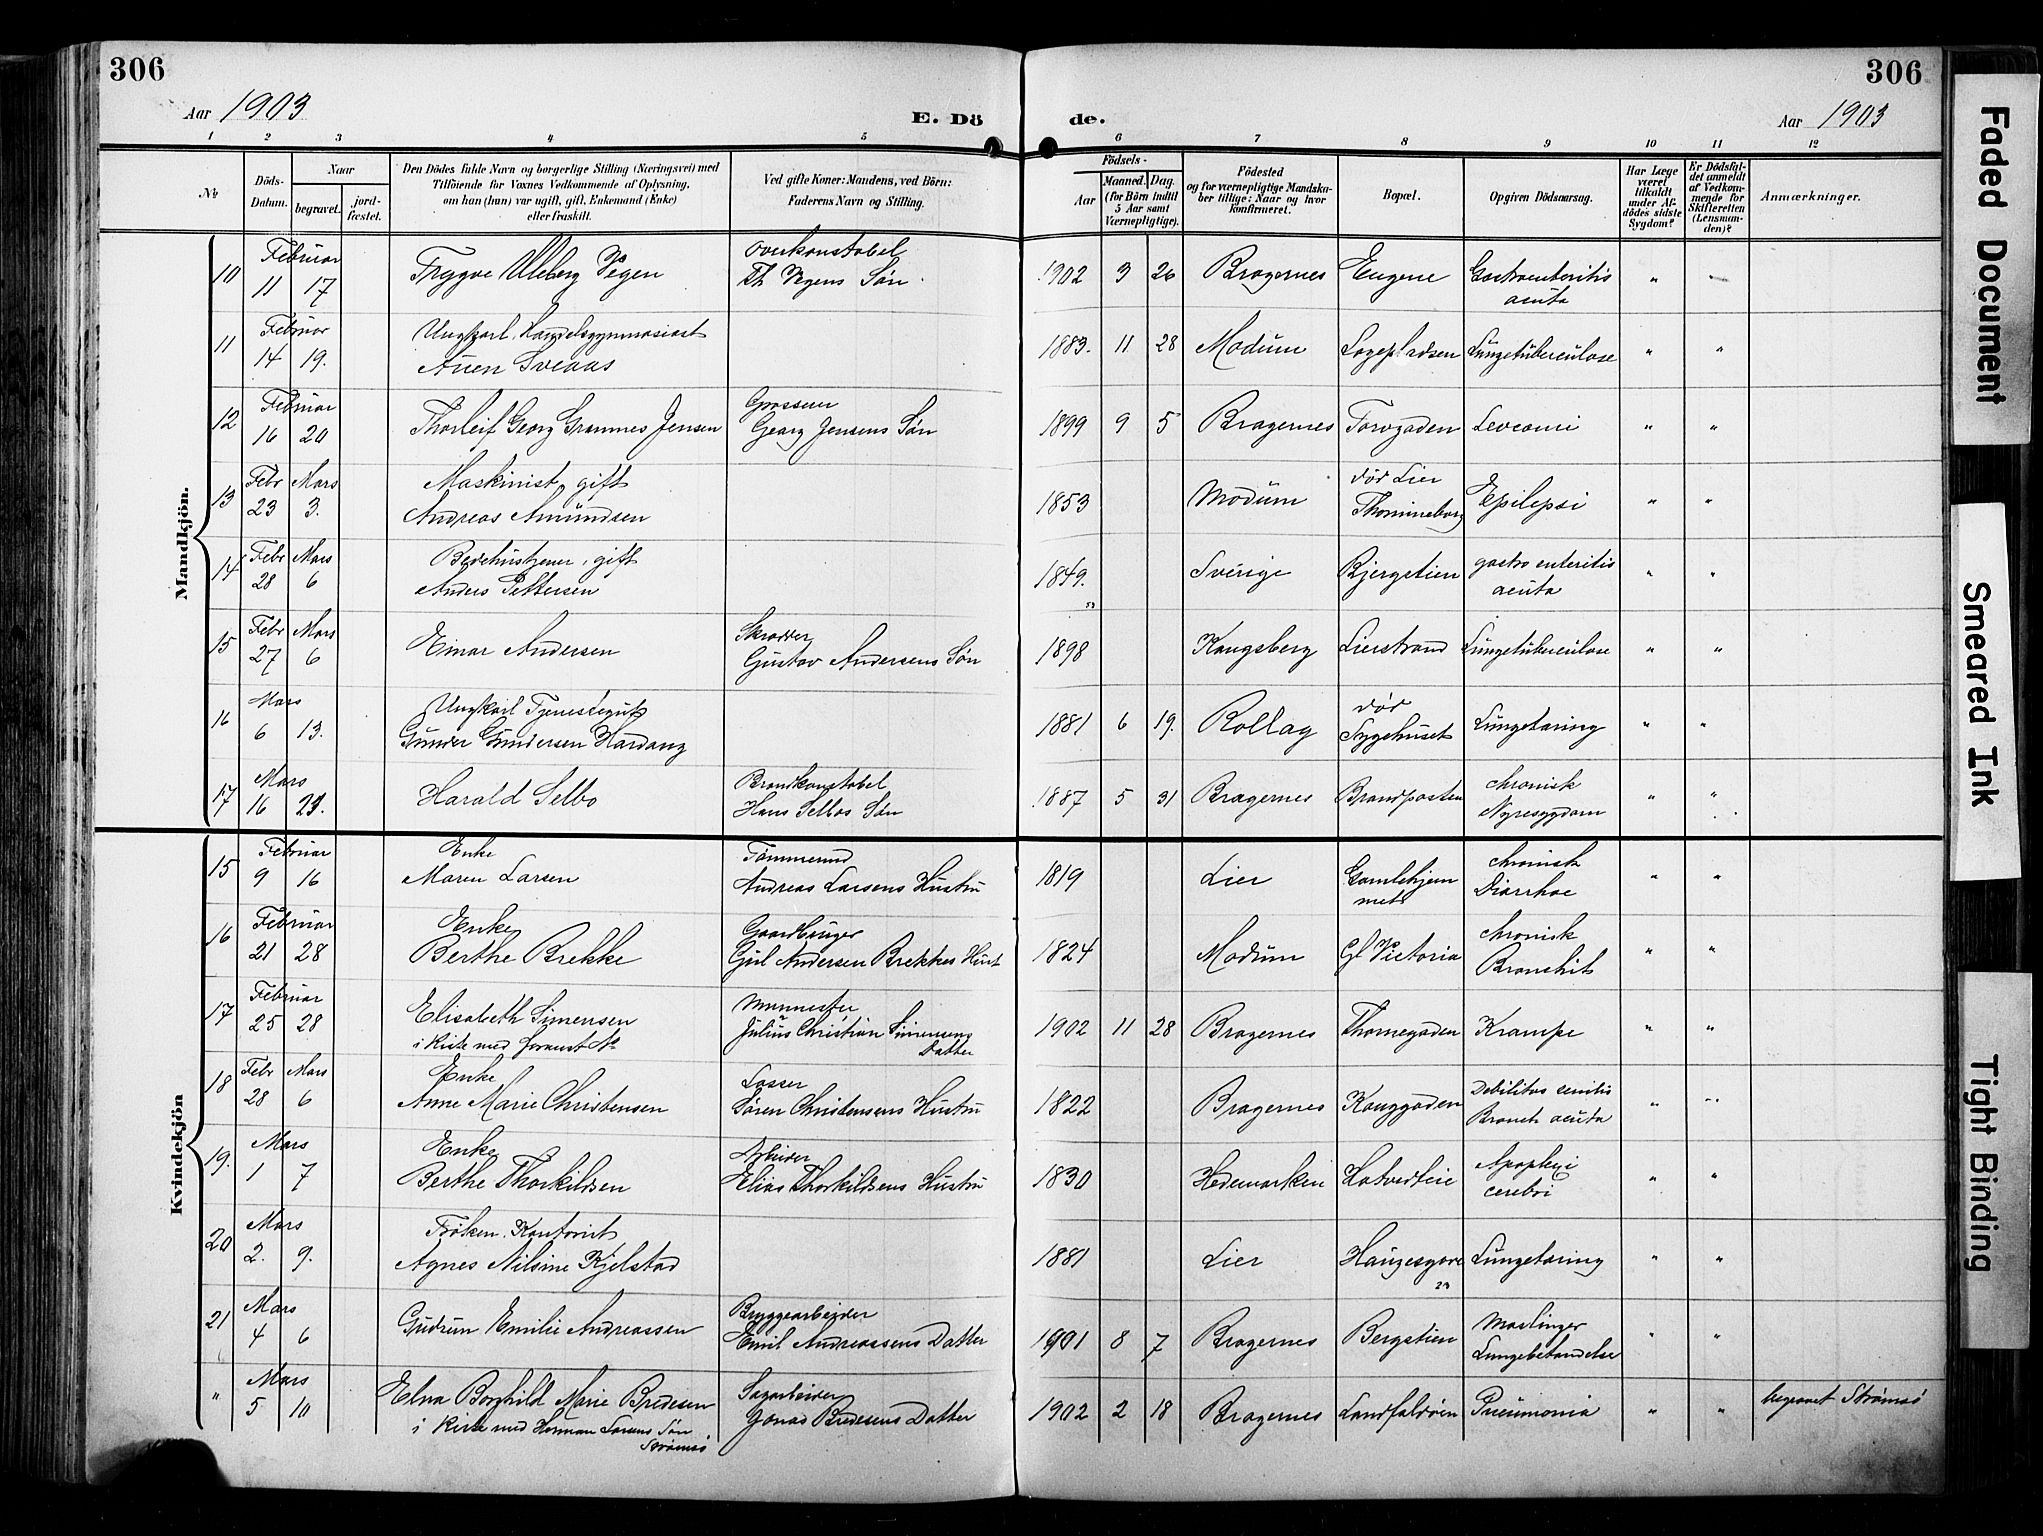 306
306
Aar 1903
E. Dö
de.
Aar 1903
1 2 3 4 5 6 7 8 9 10 11 12
№
Döds-
Datum.
Naar
begravet.
jord-
fæstet.
Den Dödes fulde Navn og borgerlige Stilling (Næringsvei) med
Tilföiende for Voxnes Vedkommende af Oplysning,
om han (hun) var ugift, gift, Enkemand (Enke)
eller fraskilt.
Ved gifte Koner: Mandens, ved Börn:
Faderens Navn og Stilling.
Födsels-
Aar
Maaned. Dag.
(for Börn indtil
5 Aar samt
Værnepligtige).
Födested
og for værnepligtige Mandska-
ber tillige: Naar og hvor
konfirmeret.
Bopæl.
Opgiven Dödsaarsag.
Har Læge
været
tilkaldt
under Af-
dödes sidste
Sygdom?
Er Dödsfal-
det anmeldt
af Vedkom-
mende for
Skifteretten
(Lensman-
den)?
Anmærkninger.
Mandkjön.
10 Februar 11 17 Trygve Ulleberg Vegen Overkonstabel
Th Vegens Søn. 1902 3 26 Bragernes Eugene Gastroenteritis
acuta " "
11 Februar 14 19. Ungkarl. Handelsgymnasiast
Auen Sveaas 1883. 11 28 Modum Torgepladsen Lungetuberculose " "
12 Februar 16 20 Thorleif Georg Gramnes Jensen Grosserer
Georg Jensens Søn 1899 9 5 Bragernes Torvgaden " "
13 Febr 23 Mars 3. Maskinist, gift
Andreas Amundsen 1853 Modum dør Lier
Thomineborg Epilepsi " "
14 Febr 28 Mars 6 Bedehustjener, gift
Anders Pettersen 1849. Sverige Bjergstien gastro enteritis
acuta " "
15 Febr 27 Mars 6 Einar Andersen Skrædder
Gustav Andersens Søn 1898 Kongsberg Lierstrand Lungetuberculose " "
16 Mars 6 13. Ungkarl Tjenestegut
Gunder Gundersen Hardang 1881 6 19. Rollag dør
Sygehuset Lungetæring " "
17 Mars 16 23. Harald Selbo Brandkonstabel
Hans Selbos Søn 1887 5 31 Bragernes Brandposten chronisk
Nyresygdom " "
Kvindekjön
15 Februar 9 16 Enke
Maren Larsen Tømmermd
Andreas Larsens Hustru 1819 Lier Gamlehjem
met chronisk
Diarrhoe " "
16 Februar 21 28 Enke
Berthe Brekke Gaardbruger
Gul Andersen Brekkes Hust 1824 Modum Gl Victoria chronisk
Bronchit " "
17 Februar 25 28 Elisabeth Simensen
i Kiste med Murmester
Julius Christian Simensens
Datter 1902 11 28 Bragernes Thornegaden Krampe " "
18 Febr 28 Mars 6 Enke
Anne Marie Christensen Losser
Søren Christensens Hustru 1822 Bragernes Konggaden Debilitas senilis
Bronch acuta " "
19. Mars 1 7 Enke
Berthe Thorkildsen Arbeider
Elias Thorkildsens Hustru 1830 Hedemarken Hotvedtveie Apoplexi
cerebri " "
20 Mars 2. 9. Frøken. Kontorist
Agnes Nilsine Kjelstad 1881 Lier Haugesgade
23 Lungetæring " "
21 Mars 4 6 Gudrun Emilie Andreassen Bryggearbejder
Emil Andreassens Datter 1901 8 7 Bragernes Bergstien Mæslinger
Lungebetændelse " "
" Mars 5 10 Elna Borghild Marie Bredesen
i Kiste med Herman Larsens Søn
Strømsø Sagarbeider
Jonas Bredesens Datter 1902 2 18 Bragernes Landfaldøen Pneumonia " " begravet Strømsø
Faded Document
Smeared Ink
Tight Binding